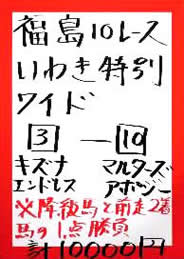 福島10レース
いわき特別
ワイド
3 — 10
キズナ マルターズ
エンドレス アポジー
※降級馬と前走2着
馬の1点勝負
計10000円